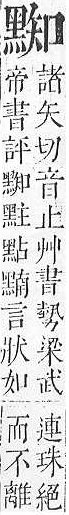 𪑜
諸矢切音止艸書勢梁武
帝書評𪑜𪐴點𪑮言狀如
連珠絕
而不離